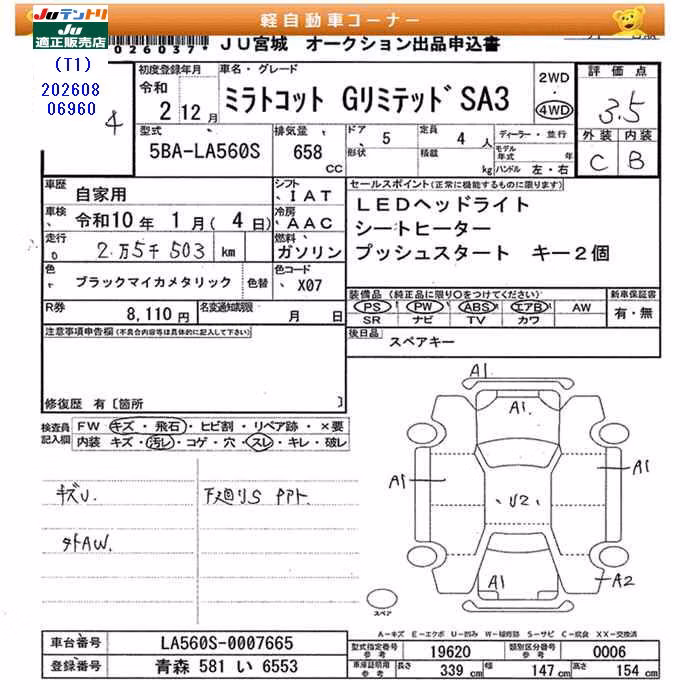 Juテントリ 軽自動車コーナー
Ju適正販売店 026037* JU宮城 オークション出品申込書
(T1)
202608
06960
4
初度登録年月 車名・グレード 2WD 評価点
令和 2 12月 ミラトコット Gリミテッド SA3 4WD 3.5
型式 排気量 ドア 5 定員 4 人 ディーラー・並行 外装 内装
5BA-LA560S 658 CC 形状 積載 kg モデル年式 年 ハンドル 左・右 C B
車歴 自家用 シフト IAT セールスポイント(正常に機能するものに限ります)
車検 令和10年 1月(4日) 冷房 AAC LEDヘッドライト
走行 2万5千503 km 燃料 ガソリン シートヒーター
色 ブラックマイカメタリック 色替 色コード X07 プッシュスタート キー2個
R券 8,110円 名変通知期限 月 日 装備品(純正品に限り○をつけてください) 新車保証書
PS PW ABS エアB AW 有・無
SR ナビ TV カワ
注意事項申告欄(不具合内容等は具体的に記入して下さい) 後日品 スペアキー
修復歴 有[箇所 ]
検査員記入欄 FW キズ・飛石・ヒビ割・リペア跡・×要
内装 キズ・汚レ・コゲ・穴・スレ・キレ・破レ
キズU. 下廻りS PPト.
外AW.
A1
A1
A1 U2 A1
A1 A2
スペア
A-キズ E-エクボ U-凹み W-補修跡 S-サビ C-腐食 XX-交換済
車台番号 LA560S-0007665 型式指定番号 参考 19620 類別区分番号 参考 0006
登録番号 青森 581 い 6553 車庫証明用 参考 長さ 339 cm 幅 147 cm 高さ 154 cm